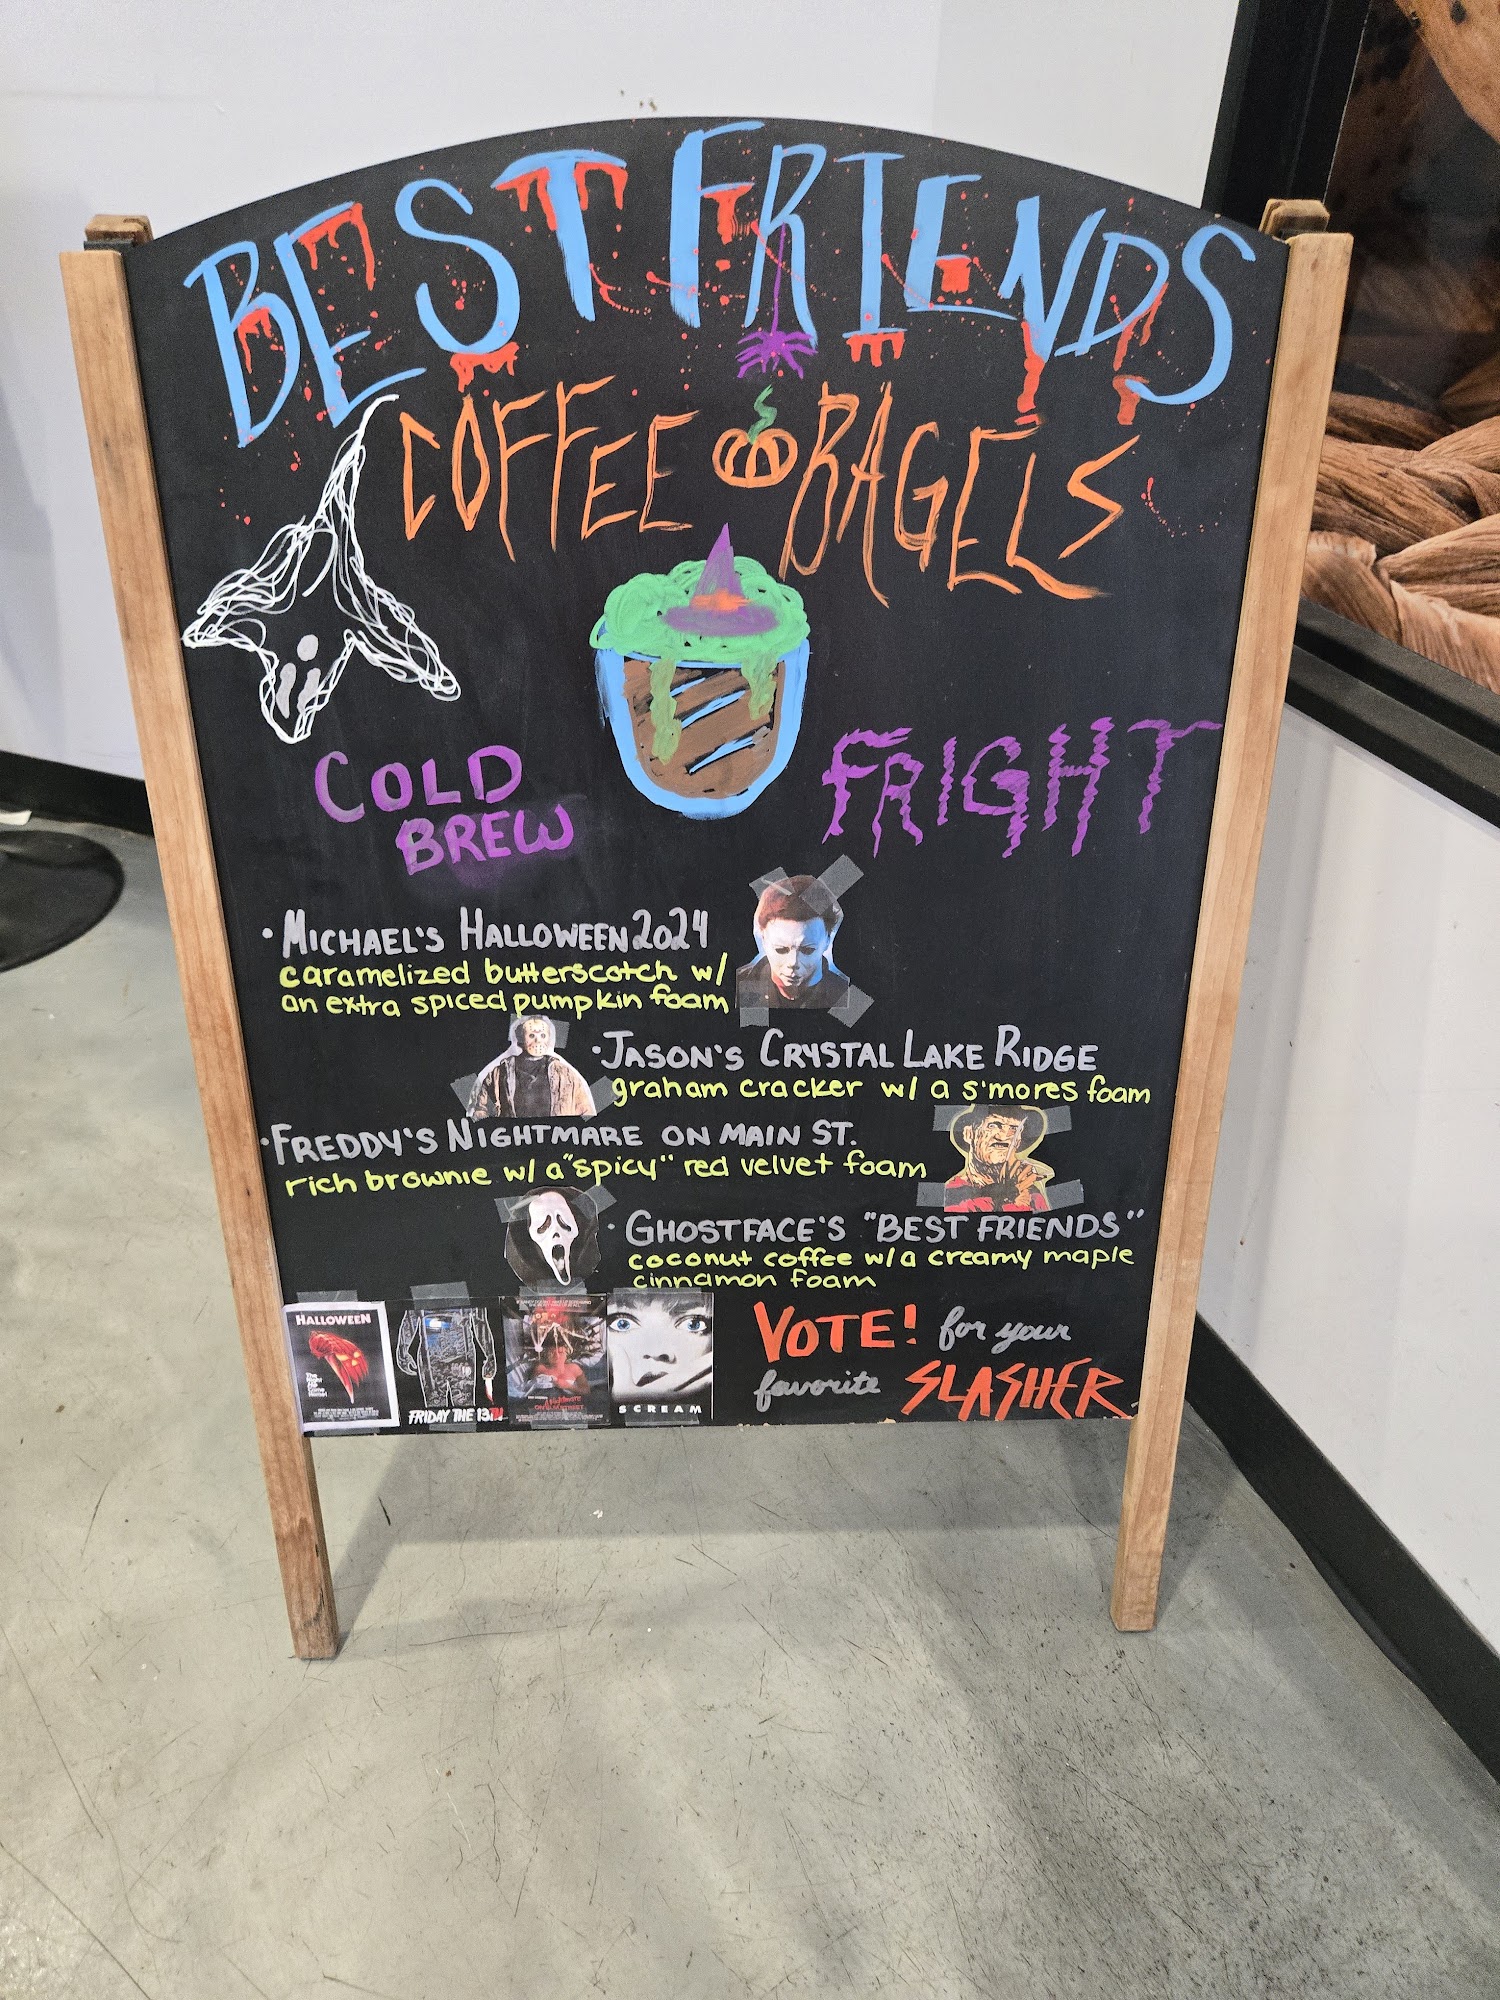 BEST FRIENDS
COFFEE BAGELS
COLD BREW
FRIGHT
• MICHAEL'S HALLOWEEN 2024
caramelized butterscotch w/
an extra spiced pumpkin foam
• JASON'S CRYSTAL LAKE RIDGE
graham cracker w/ a s'mores foam
• FREDDY'S NIGHTMARE ON MAIN ST.
rich brownie w/ a "spicy" red velvet foam
• GHOSTFACE'S "BEST FRIENDS"
coconut coffee w/ a creamy maple
cinnamon foam
HALLOWEEN
The Night He Came Home!
FRIDAY THE 13TH
A Nightmare
ON ELM STREET
SCREAM
VOTE! for your
favorite SLASHER